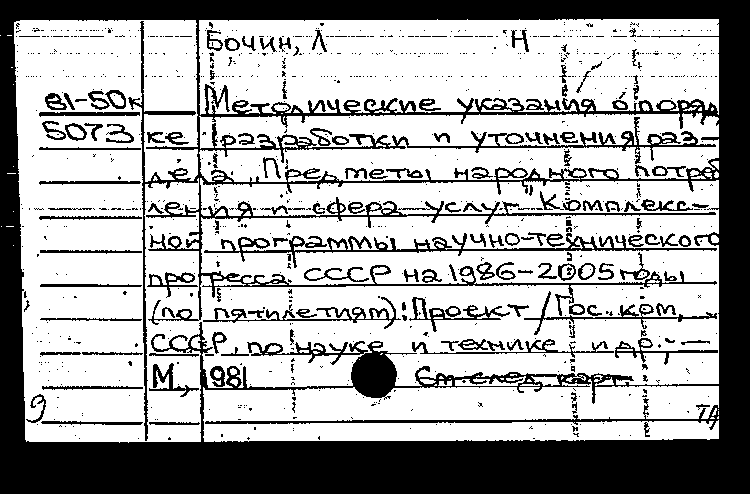 Бочин, Л Н
81-50к Методические указания о поряд
5073 ке разработки и уточнения раз-
дела „Предметы народного потреб
ления и сфера услуг" Комплекс-
ной программы научно-технического
прогресса СССР на 1986-2005 годы
(по пятилетиям): Проект / Гос. ком,
СССР. по науке и технике и др.; —
М., 1981 См. след. карт.
9 ТА